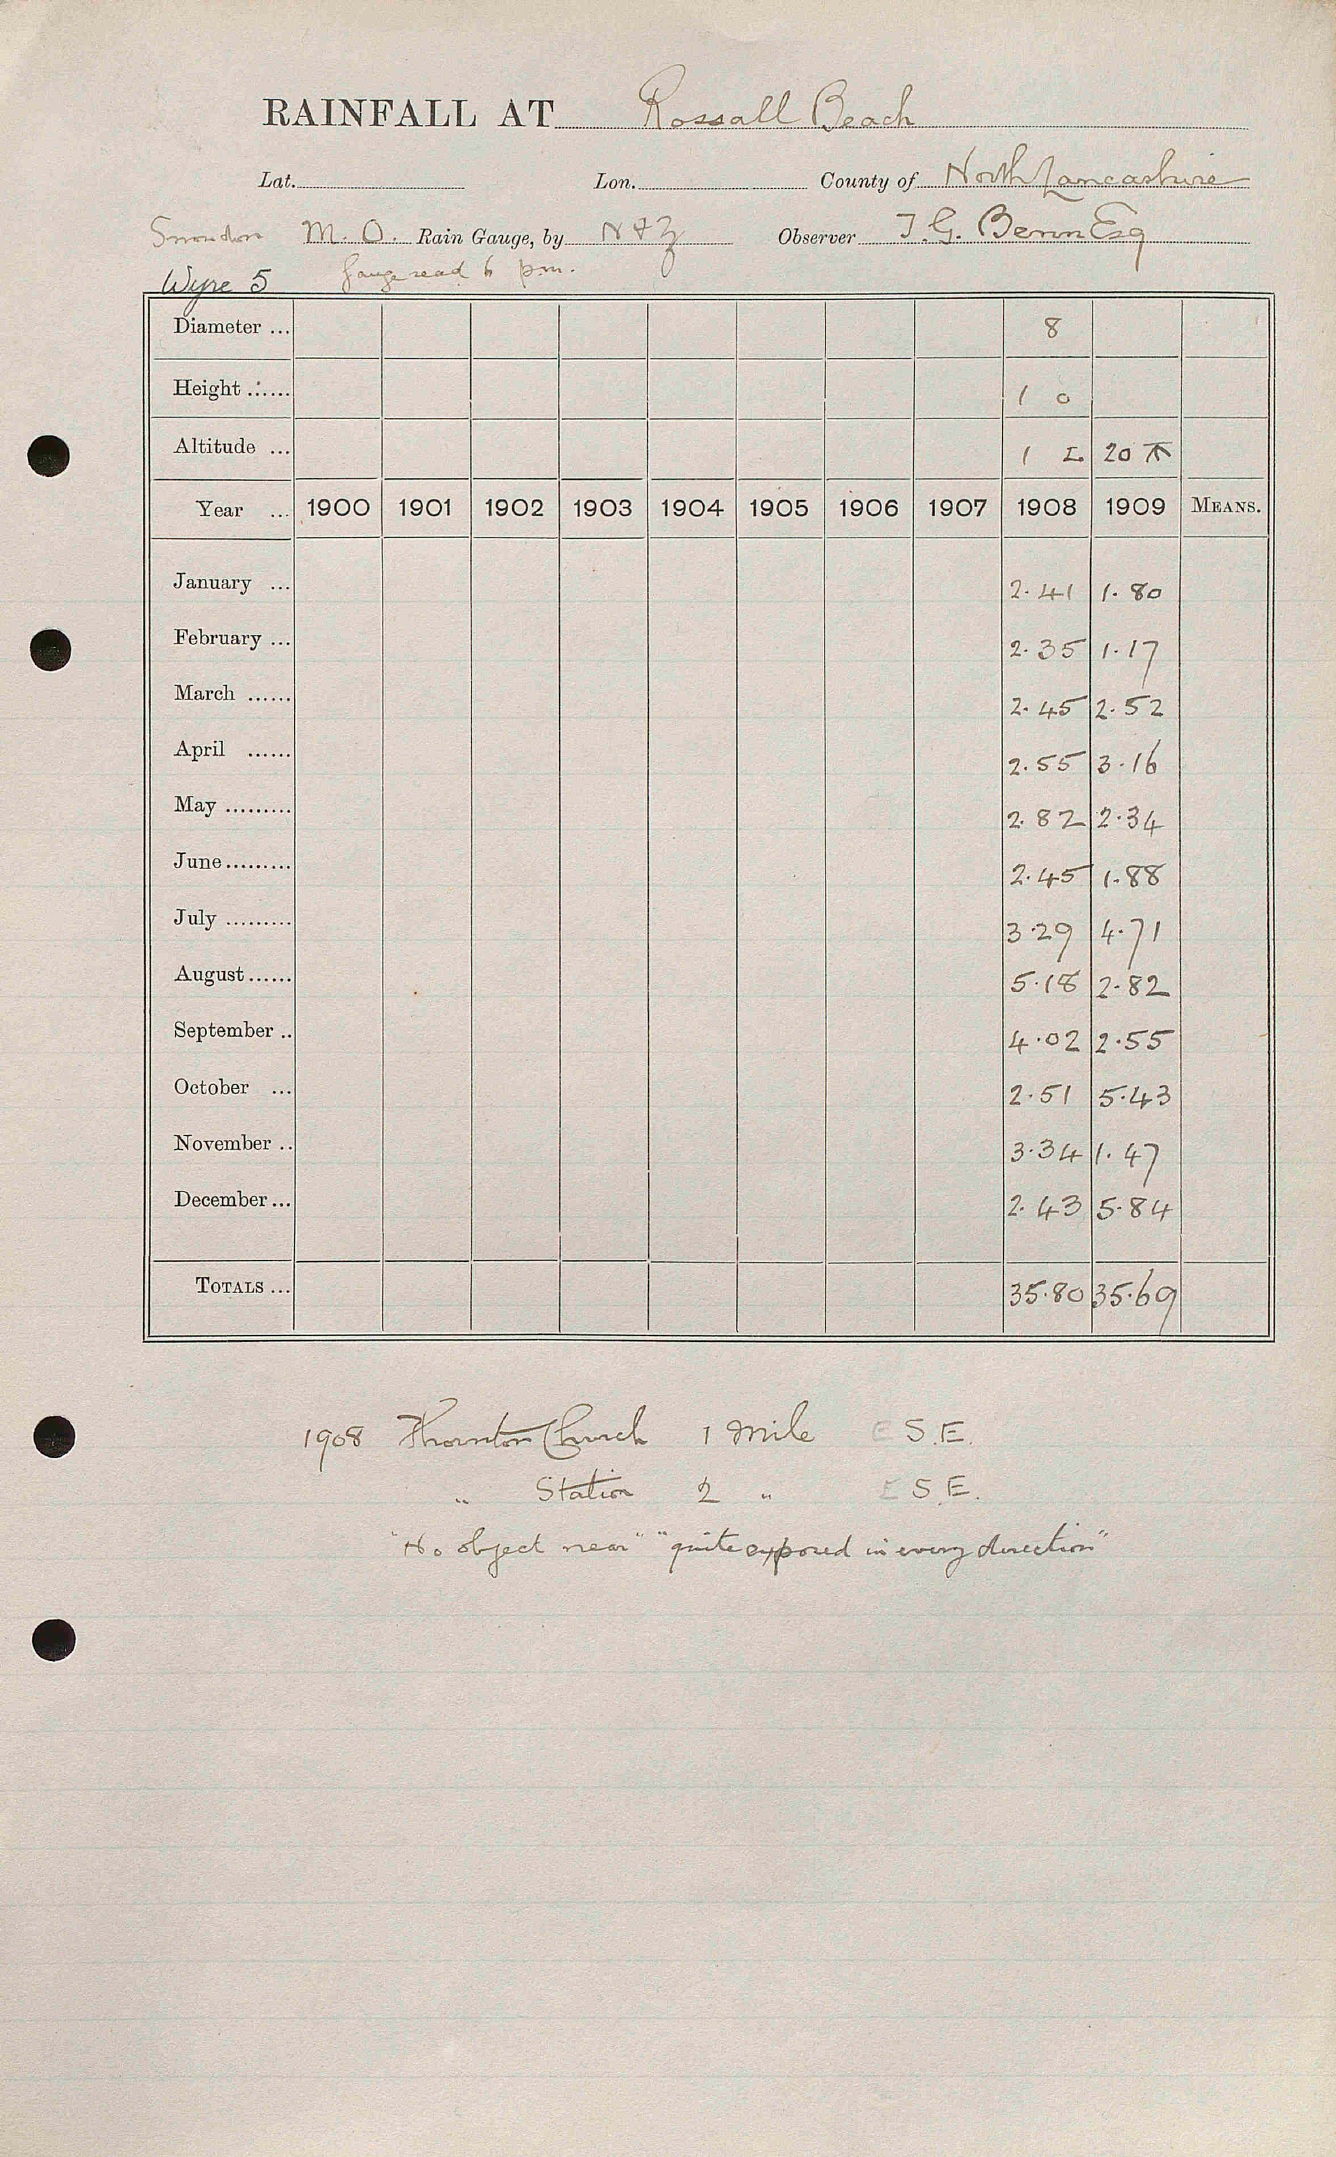 RAINFALL AT Rossall Beach
Lat. Lon. County of North Lancashire
Snowdon M.O. Rain Gauge, by N & Z Observer T. G. Benn Esq
Wyre 5 Gauge read 6 p.m.
Diameter ... 8
Height ...... 1 0
Altitude ... 1 20
Year ... 1900 1901 1902 1903 1904 1905 1906 1907 1908 1909 MEANS.
January ... 2.41 1.80
February ... 2.35 1.17
March ...... 2.45 2.52
April ...... 2.55 3.16
May ......... 2.82 2.34
June ......... 2.45 1.88
July ......... 3.29 4.71
August ...... 5.18 2.82
September .. 4.02 2.55
October ... 2.51 5.43
November .. 3.34 1.47
December ... 2.43 5.84
TOTALS ... 35.80 35.69
1908 Thornton Church 1 Mile E S.E.
" Station 2 " E S.E.
"No object near" "quite exposed in every direction"